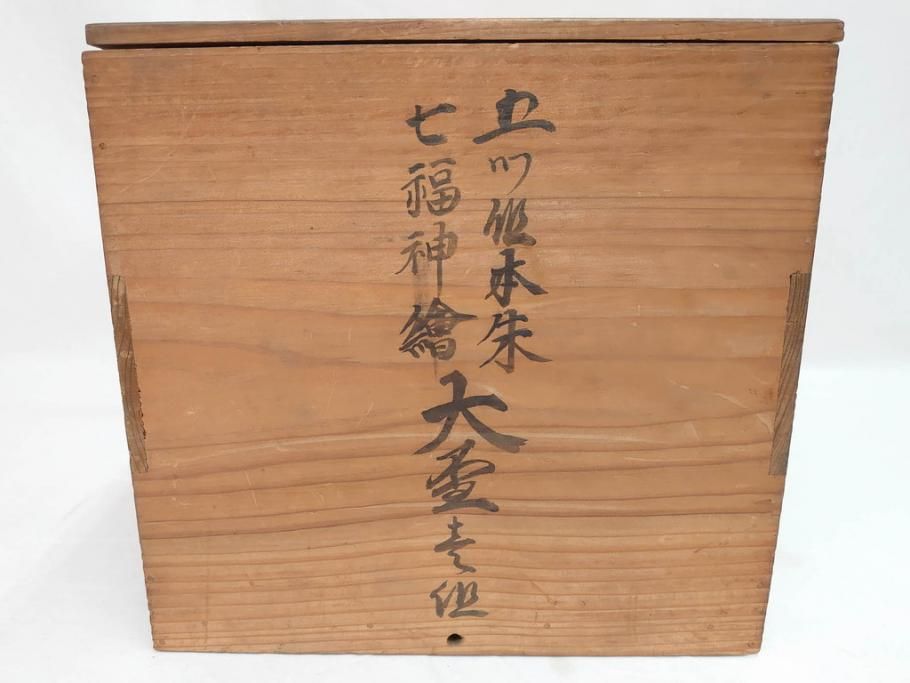 五ツ組本朱
七福神繪
大盃壱組